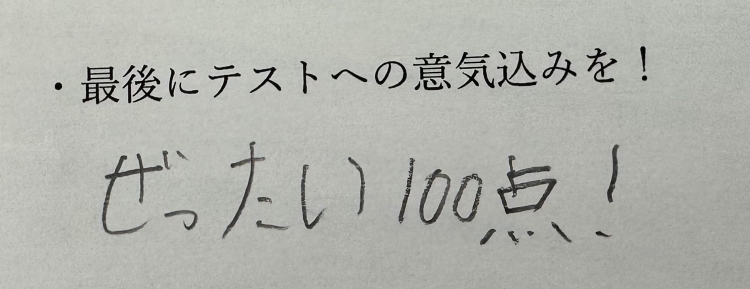 ・最後にテストへの意気込みを！
ぜったい100点！